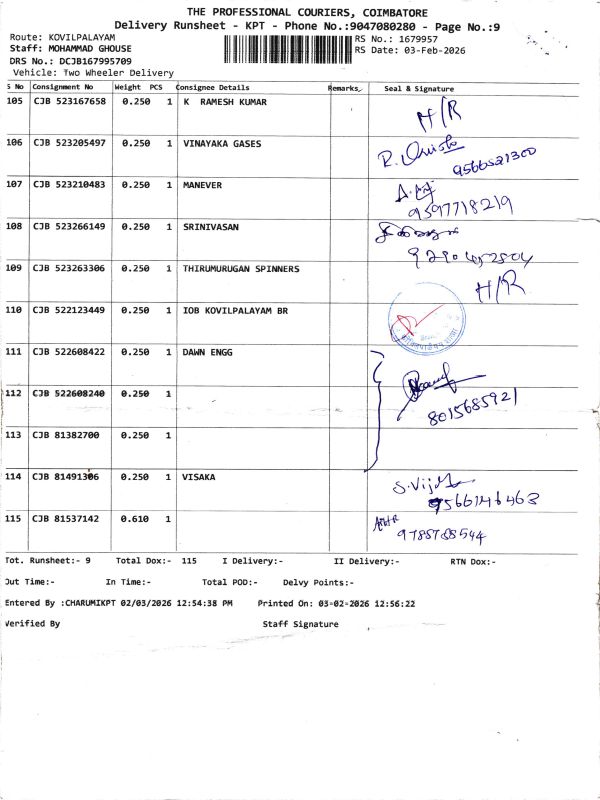 THE PROFESSIONAL COURIERS, COIMBATORE
Delivery Runsheet - KPT - Phone No.:9047080280 - Page No.:9
Route: KOVILPALAYAM
RS No.: 1679957
Staff: MOHAMMAD GHOUSE
RS Date: 03-Feb-2026
DRS No.: DCJB167995709
Vehicle: Two Wheeler Delivery
S No Consignment No Weight PCS Consignee Details Remarks Seal & Signature
105 CJB 523167658 0.250 1 K RAMESH KUMAR H/R
106 CJB 523205497 0.250 1 VINAYAKA GASES
9566521300
107 CJB 523210483 0.250 1 MANEVER
9597718219
108 CJB 523266149 0.250 1 SRINIVASAN
109 CJB 523263306 0.250 1 THIRUMURUGAN SPINNERS H/R
110 CJB 522123449 0.250 1 IOB KOVILPALAYAM BR
111 CJB 522608422 0.250 1 DAWN ENGG
112 CJB 522608240 0.250 1
8015685921
113 CJB 81382700 0.250 1
114 CJB 81491306 0.250 1 VISAKA
9566146463
115 CJB 81537142 0.610 1
9785788544
Tot. Runsheet:- 9 Total Dox:- 115 I Delivery:- II Delivery:- RTN Dox:-
Out Time:- In Time:- Total POD:- Delvy Points:-
Entered By :CHARUMIKPT 02/03/2026 12:54:38 PM Printed On: 03-02-2026 12:56:22
Verified By Staff Signature